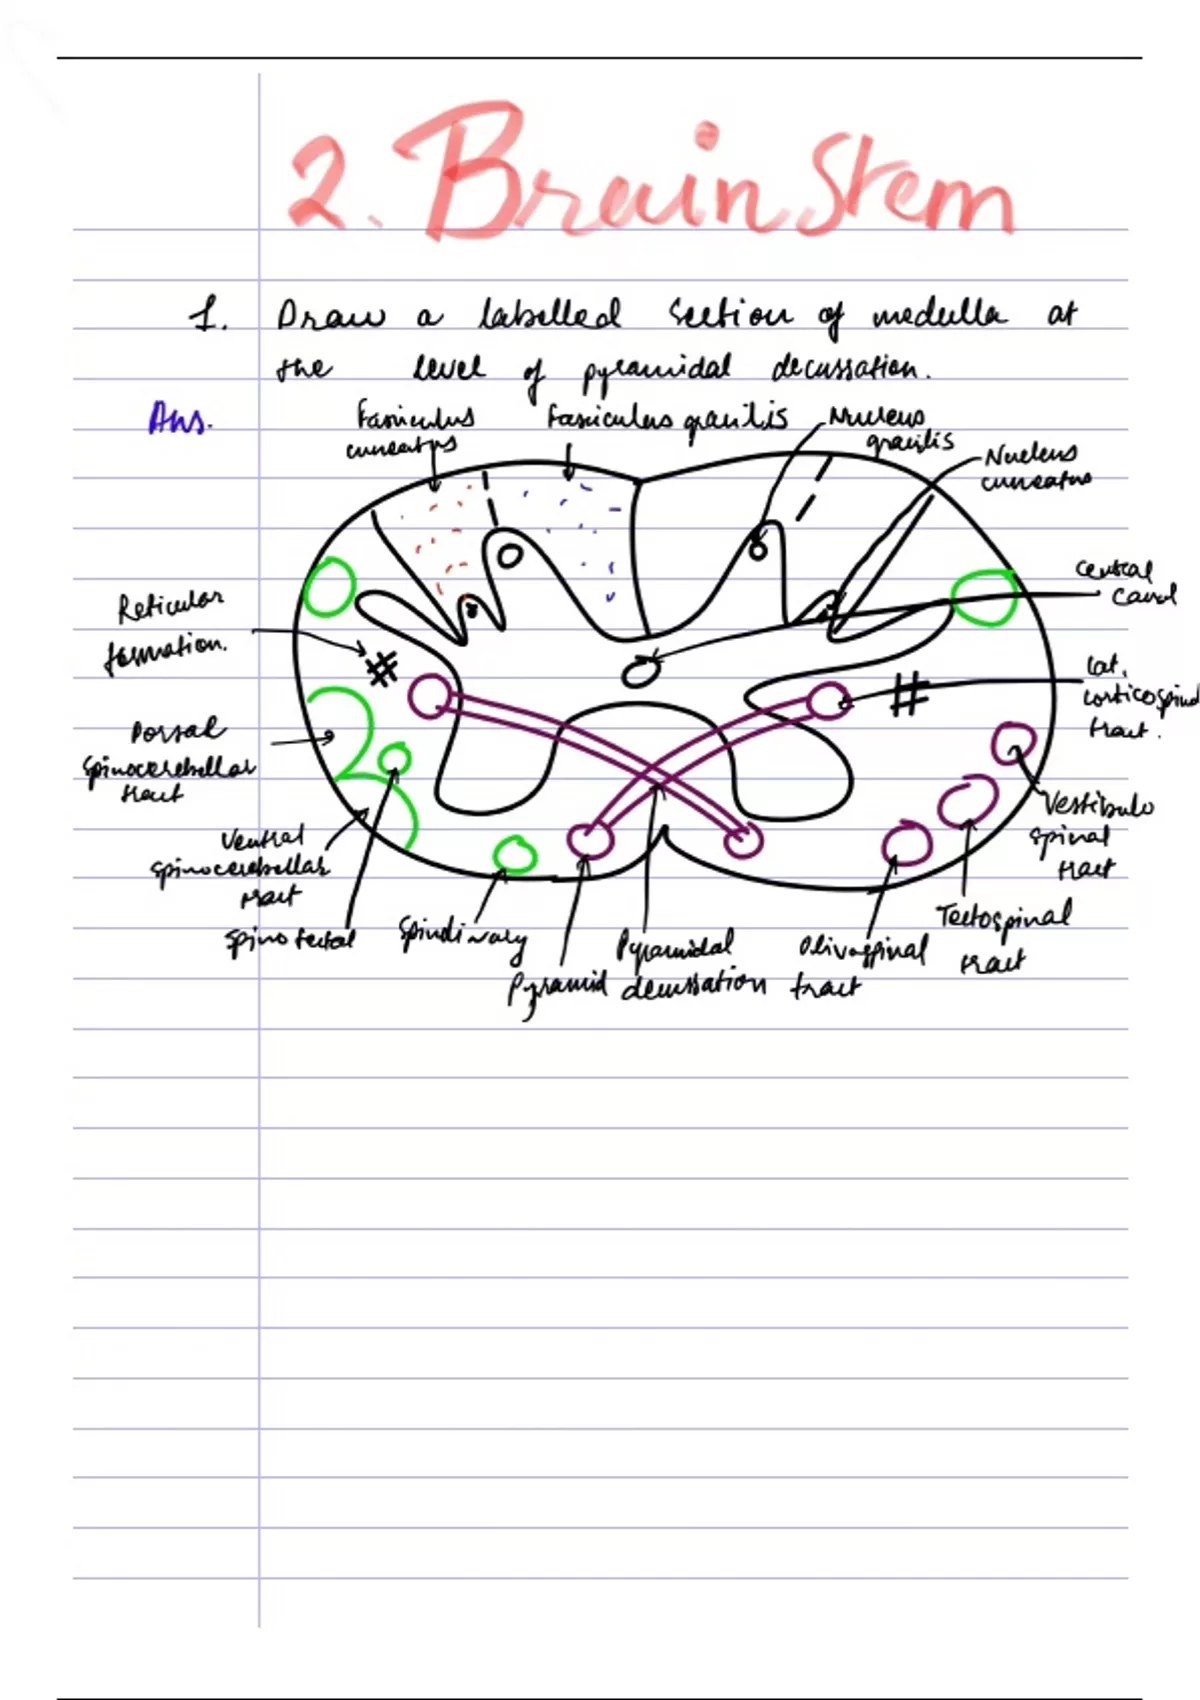 2. Brain Stem
1. Draw a labelled section of medulla at
the level of pyramidal decussation.
Ans.
Fasciculus
cuneatus
Fasciculus gracilis
Nucleus
gracilis
Nucleus
cuneatus
Central
Canal
Reticular
formation.
Lat.
corticospinal
tract.
Dorsal
spinocerebellar
tract
Vestibulo
spinal
tract
Ventral
spinocerebellar
tract
Spinotectal
Spinolivary
Pyramid
Pyramidal
decussation
Olivospinal
tract
Tectospinal
tract